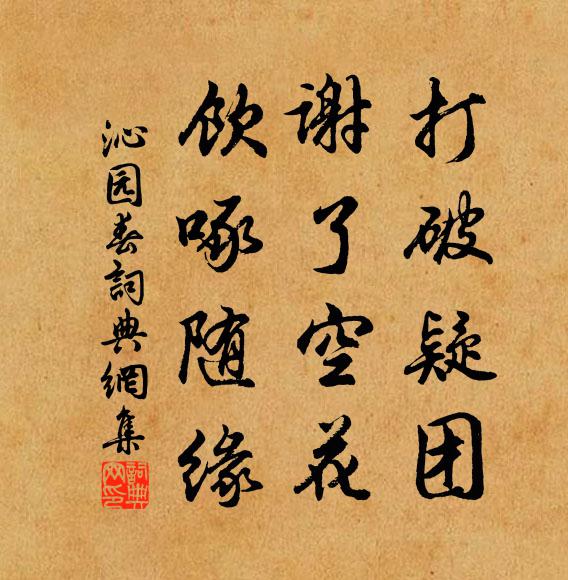 打破疑团
谢了空花
饮啄随缘
沁园春詞典網集
詞典
网印